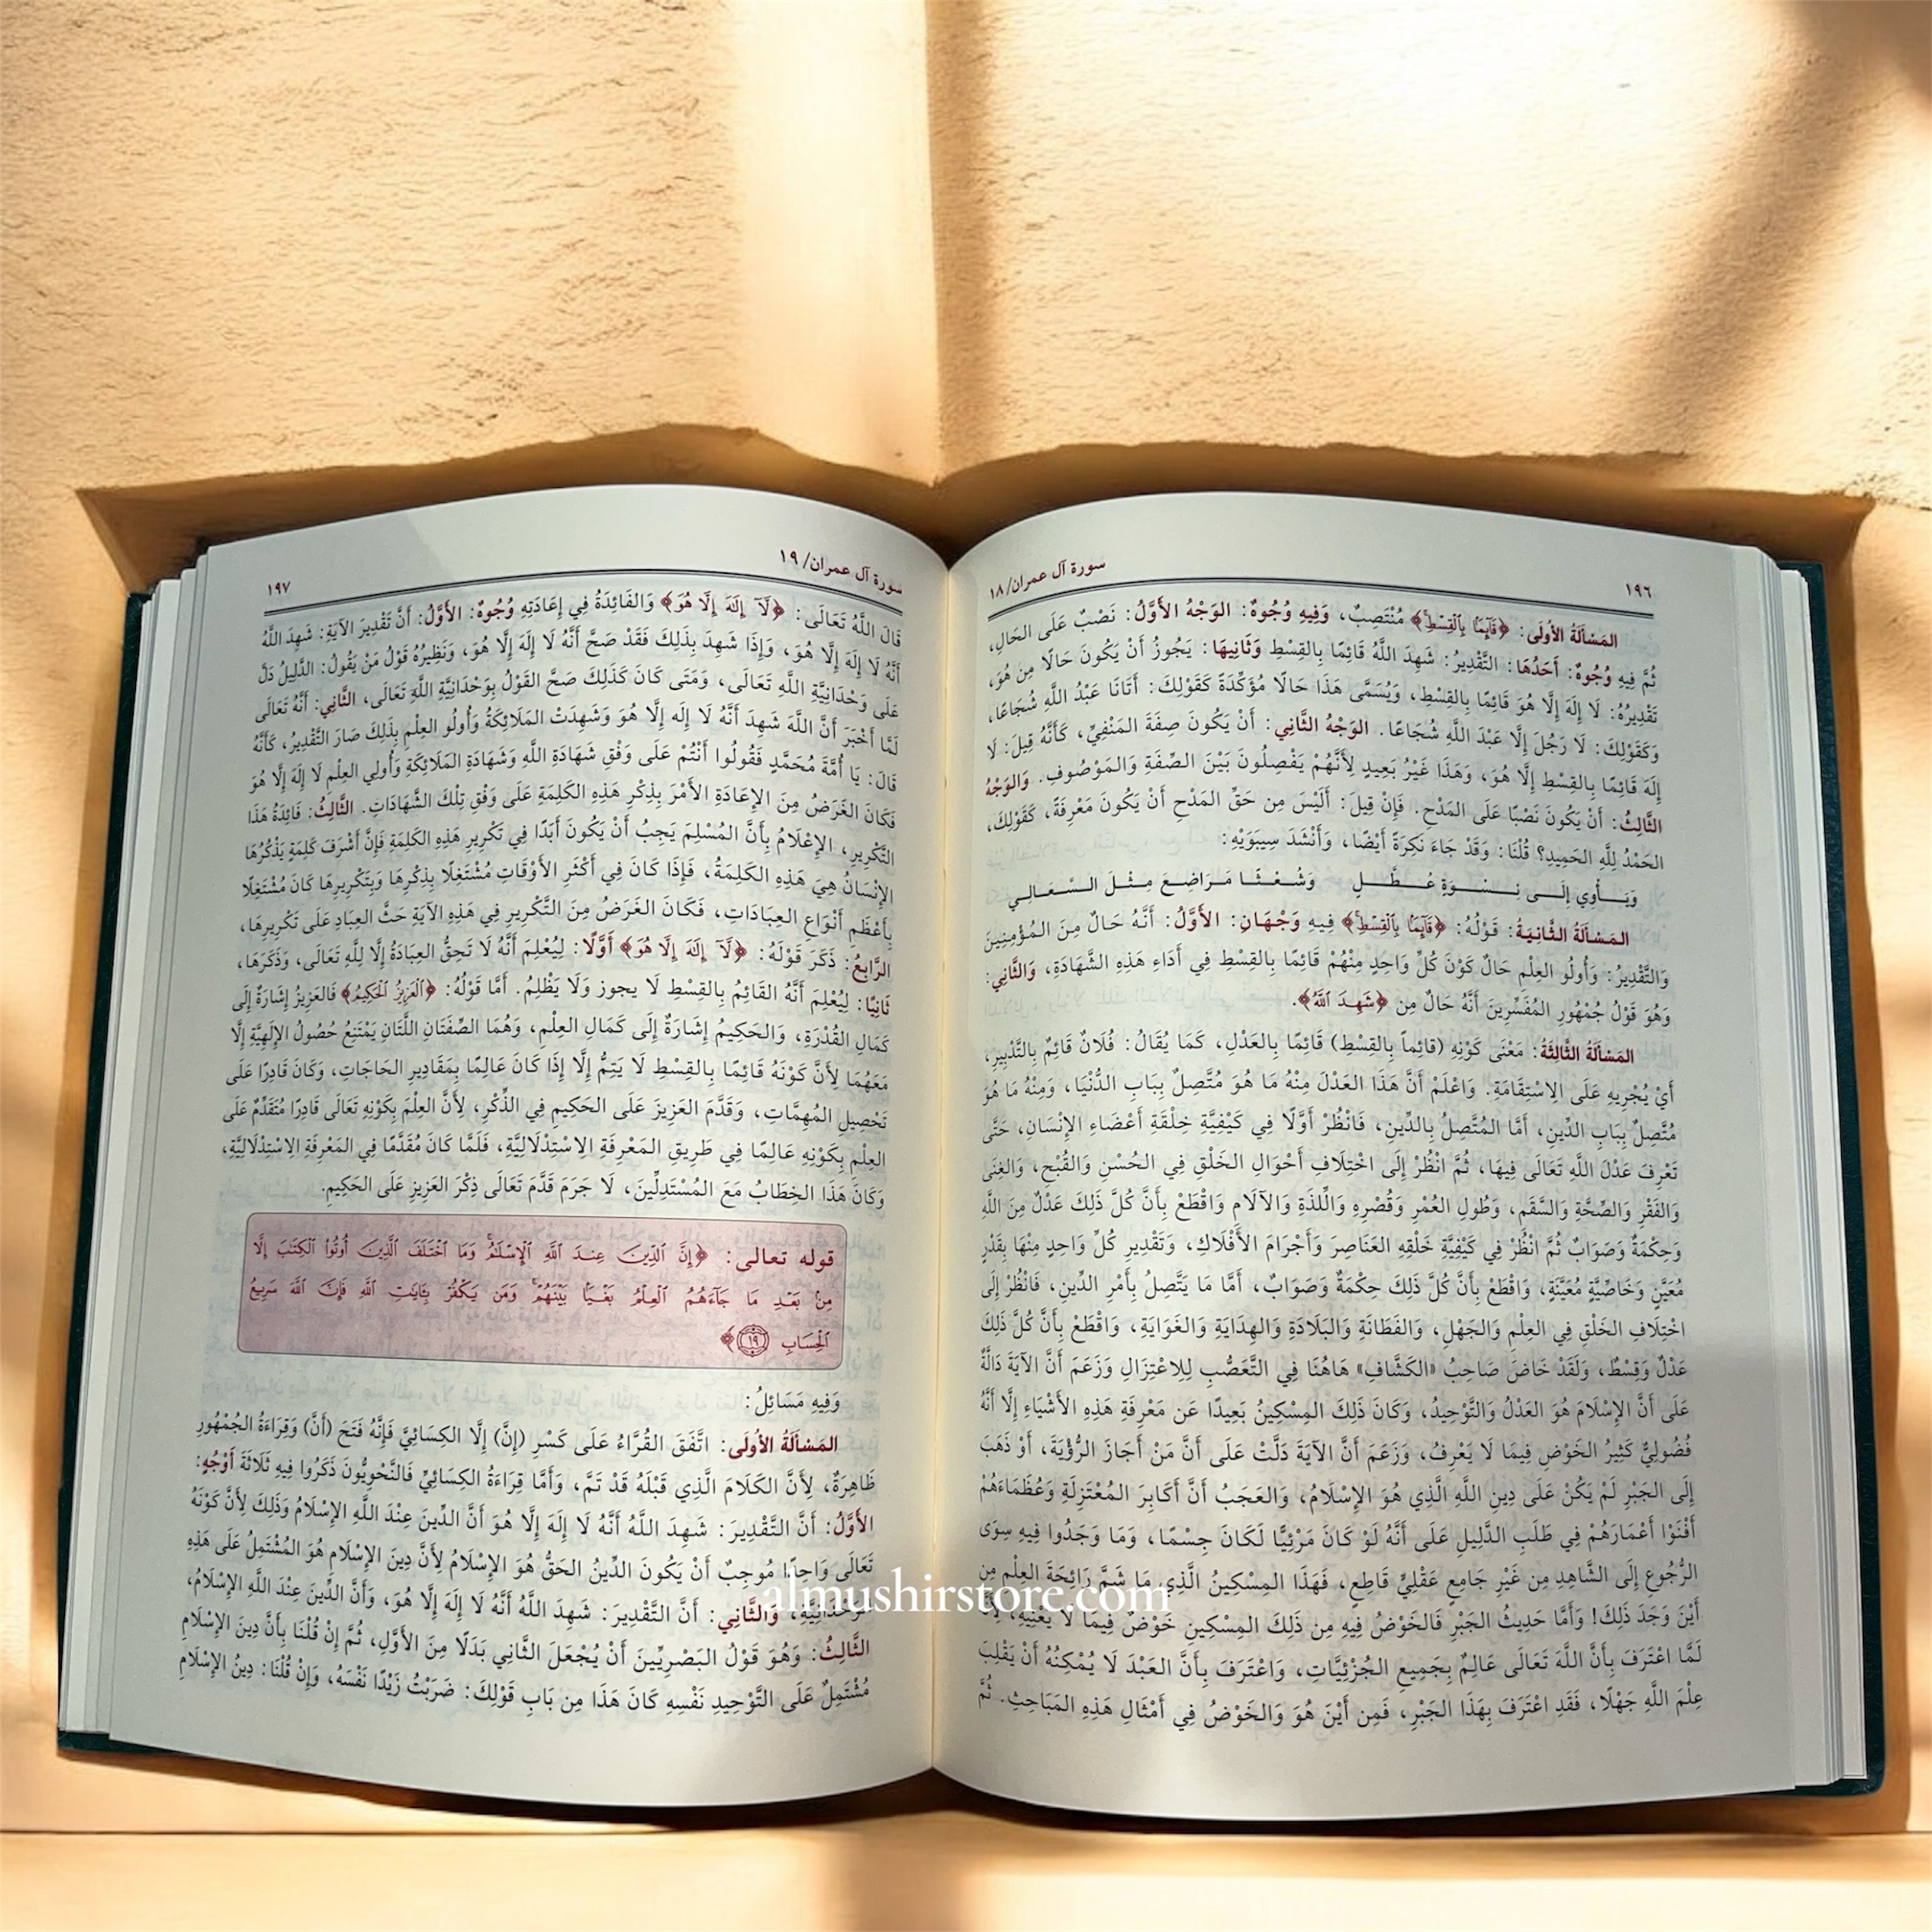 ١٩٦
سورة آل عمران/١٨
المَسْأَلَةُ الأُولَى: ﴿قَآئِمًۢا بِٱلْقِسْطِۚ﴾ مُنْتَصِبٌ، وَفِيهِ وُجُوهٌ: الوَجْهُ الأَوَّلُ: نَصْبٌ عَلَى الحَالِ،
ثُمَّ فِيهِ وُجُوهٌ: أَحَدُهَا: التَّقْدِيرُ: شَهِدَ اللَّهُ قَائِمًا بِالقِسْطِ وَثَانِيهَا: يَجُوزُ أَنْ يَكُونَ حَالًا مِن هُوَ،
تَقْدِيرُهُ: لَا إِلَهَ إِلَّا هُوَ قَائِمًا بِالقِسْطِ، وَيُسَمَّى هَذَا حَالًا مُؤَكِّدَةً كَقَوْلِكَ: أَتَانَا عَبْدُ اللَّهِ شُجَاعًا،
وَكَقَوْلِكَ: لَا رَجُلَ إِلَّا عَبْدَ اللَّهِ شُجَاعًا. الوَجْهُ الثَّانِي: أَنْ يَكُونَ صِفَةَ المَنْفِيِّ، كَأَنَّهُ قِيلَ: لَا
إِلَهَ قَائِمًا بِالقِسْطِ إِلَّا هُوَ، وَهَذَا غَيْرُ بَعِيدٍ لِأَنَّهُمْ يَفْصِلُونَ بَيْنَ الصِّفَةِ وَالمَوْصُوفِ. وَالوَجْهُ
الثَّالِثُ: أَنْ يَكُونَ نَصْبًا عَلَى المَدْحِ. فَإِنْ قِيلَ: أَلَيْسَ مِن حَقِّ المَدْحِ أَنْ يَكُونَ مَعْرِفَةً، كَقَوْلِكَ،
الحَمْدُ لِلَّهِ الحَمِيدِ؟ قُلْنَا: وَقَدْ جَاءَ نَكِرَةً أَيْضًا، وَأَنْشَدَ سِيبَوَيْهِ:
وَيَأْوِي إِلَى نِسْوَةٍ عُطَّلٍ وَشُعْثًا مَرَاضِعَ مِثْلَ السَّعَالِي
المَسْأَلَةُ الثَّانِيَةُ: قَوْلُهُ: ﴿قَآئِمًۢا بِٱلْقِسْطِۚ﴾ فِيهِ وَجْهَانِ: الأَوَّلُ: أَنَّهُ حَالٌ مِنَ المُؤْمِنِينَ
وَالتَّقْدِيرُ: وَأُولُو العِلْمِ حَالَ كَوْنِ كُلِّ وَاحِدٍ مِنْهُمْ قَائِمًا بِالقِسْطِ فِي أَدَاءِ هَذِهِ الشَّهَادَةِ، وَالثَّانِي:
وَهُوَ قَوْلُ جُمْهُورِ المُفَسِّرِينَ أَنَّهُ حَالٌ مِن ﴿شَهِدَ ٱللَّهُ﴾.
المَسْأَلَةُ الثَّالِثَةُ: مَعْنَى كَوْنِهِ (قائِماً بِالقِسْطِ) قَائِمًا بِالعَدْلِ، كَمَا يُقَالُ: فُلَانٌ قَائِمٌ بِالتَّدْبِيرِ،
أَيْ يُجْرِيهِ عَلَى الِاسْتِقَامَةِ. وَاعْلَمْ أَنَّ هَذَا العَدْلَ مِنْهُ مَا هُوَ مُتَّصِلٌ بِبَابِ الدُّنْيَا، وَمِنْهُ مَا هُوَ
مُتَّصِلٌ بِبَابِ الدِّينِ، أَمَّا المُتَّصِلُ بِالدِّينِ، فَانْظُرْ أَوَّلًا فِي كَيْفِيَّةِ خِلْقَةِ أَعْضَاءِ الإِنْسَانِ، حَتَّى
تَعْرِفَ عَدْلَ اللَّهِ تَعَالَى فِيهَا، ثُمَّ انْظُرْ إِلَى اخْتِلَافِ أَحْوَالِ الخَلْقِ فِي الحُسْنِ وَالقُبْحِ، وَالغِنَى
وَالفَقْرِ وَالصِّحَّةِ وَالسَّقَمِ، وَطُولِ العُمْرِ وَقُصْرِهِ وَاللَّذَّةِ وَالآلَامِ وَاقْطَعْ بِأَنَّ كُلَّ ذَلِكَ عَدْلٌ مِنَ اللَّهِ
وَحِكْمَةٌ وَصَوَابٌ ثُمَّ انْظُرْ فِي كَيْفِيَّةِ خَلْقِهِ العَنَاصِرَ وَأَجْرَامَ الأَفْلَاكِ، وَتَقْدِيرِ كُلِّ وَاحِدٍ مِنْهَا بِقَدْرٍ
مُعَيَّنٍ وَخَاصِّيَّةٍ مُعَيَّنَةٍ، وَاقْطَعْ بِأَنَّ كُلَّ ذَلِكَ حِكْمَةٌ وَصَوَابٌ، أَمَّا مَا يَتَّصِلُ بِأَمْرِ الدِّينِ، فَانْظُرْ إِلَى
اخْتِلَافِ الخَلْقِ فِي العِلْمِ وَالجَهْلِ، وَالفَطَانَةِ وَالبَلَادَةِ وَالهِدَايَةِ وَالغَوَايَةِ، وَاقْطَعْ بِأَنَّ كُلَّ ذَلِكَ
عَدْلٌ وَقِسْطٌ، وَلَقَدْ خَاضَ صَاحِبُ «الكَشَّافِ» هَاهُنَا فِي التَّعَصُّبِ لِلِاعْتِزَالِ وَزَعَمَ أَنَّ الآيَةَ دَالَّةٌ
عَلَى أَنَّ الإِسْلَامَ هُوَ العَدْلُ وَالتَّوْحِيدُ، وَكَانَ ذَلِكَ المِسْكِينُ بَعِيدًا عَن مَعْرِفَةِ هَذِهِ الأَشْيَاءِ إِلَّا أَنَّهُ
فُضُولِيٌّ كَثِيرُ الخَوْضِ فِيمَا لَا يَعْرِفُ، وَزَعَمَ أَنَّ الآيَةَ دَلَّتْ عَلَى أَنَّ مَنْ أَجَازَ الرُّؤْيَةَ، أَوْ ذَهَبَ
إِلَى الجَبْرِ لَمْ يَكُنْ عَلَى دِينِ اللَّهِ الَّذِي هُوَ الإِسْلَامُ، وَالعَجَبُ أَنَّ أَكَابِرَ المُعْتَزِلَةِ وَعُظَمَاءَهُمْ
أَفْنَوْا أَعْمَارَهُمْ فِي طَلَبِ الدَّلِيلِ عَلَى أَنَّهُ لَوْ كَانَ مَرْئِيًّا لَكَانَ جِسْمًا، وَمَا وَجَدُوا فِيهِ سِوَى
الرُّجُوعِ إِلَى الشَّاهِدِ مِن غَيْرِ جَامِعٍ عَقْلِيٍّ قَاطِعٍ، فَهَذَا المِسْكِينُ الَّذِي مَا شَمَّ رَائِحَةَ العِلْمِ مِن
أَيْنَ وَجَدَ ذَلِكَ! وَأَمَّا حَدِيثُ الجَبْرِ فَالخَوْضُ فِيهِ مِن ذَلِكَ المِسْكِينِ خَوْضٌ فِيمَا لَا يَعْنِيهِ، لِأَنَّهُ
لَمَّا اعْتَرَفَ بِأَنَّ اللَّهَ تَعَالَى عَالِمٌ بِجَمِيعِ الجُزْئِيَّاتِ، وَاعْتَرَفَ بِأَنَّ العَبْدَ لَا يُمْكِنُهُ أَنْ يَقْلِبَ
عِلْمَ اللَّهِ جَهْلًا، فَقَدِ اعْتَرَفَ بِهَذَا الجَبْرِ، فَمِن أَيْنَ هُوَ وَالخَوْضُ فِي أَمْثَالِ هَذِهِ المَبَاحِثِ. ثُمَّ
سورة آل عمران/١٩
١٩٧
قَالَ اللَّهُ تَعَالَى: ﴿لَآ إِلَٰهَ إِلَّا هُوَ﴾ وَالفَائِدَةُ فِي إِعَادَتِهِ وُجُوهٌ: الأَوَّلُ: أَنَّ تَقْدِيرَ الآيَةِ: شَهِدَ اللَّهُ
أَنَّهُ لَا إِلَهَ إِلَّا هُوَ، وَإِذَا شَهِدَ بِذَلِكَ فَقَدْ صَحَّ أَنَّهُ لَا إِلَهَ إِلَّا هُوَ، وَنَظِيرُهُ قَوْلُ مَنْ يَقُولُ: الدَّلِيلُ دَلَّ
عَلَى وَحْدَانِيَّةِ اللَّهِ تَعَالَى، وَمَتَى كَانَ كَذَلِكَ صَحَّ القَوْلُ بِوَحْدَانِيَّةِ اللَّهِ تَعَالَى، الثَّانِي: أَنَّهُ تَعَالَى
لَمَّا أَخْبَرَ أَنَّ اللَّهَ شَهِدَ أَنَّهُ لَا إِلَه إِلَّا هُوَ وَشَهِدَتْ المَلَائِكَةُ وَأُولُو العِلْمِ بِذَلِكَ صَارَ التَّقْدِيرُ، كَأَنَّهُ
قَالَ: يَا أُمَّةَ مُحَمَّدٍ فَقُولُوا أَنْتُمْ عَلَى وَفْقِ شَهَادَةِ اللَّهِ وَشَهَادَةِ المَلَائِكَةِ وَأُولِي العِلْمِ لَا إِلَهَ إِلَّا هُوَ
فَكَانَ الغَرَضُ مِنَ الإِعَادَةِ الأَمْرَ بِذِكْرِ هَذِهِ الكَلِمَةِ عَلَى وَفْقِ تِلْكَ الشَّهَادَاتِ. الثَّالِثُ: فَائِدَةُ هَذَا
التَّكْرِيرِ، الإِعْلَامُ بِأَنَّ المُسْلِمَ يَجِبُ أَنْ يَكُونَ أَبَدًا فِي تَكْرِيرِ هَذِهِ الكَلِمَةِ فَإِنَّ أَشْرَفَ كَلِمَةٍ يَذْكُرُهَا
الإِنْسَانُ هِيَ هَذِهِ الكَلِمَةُ، فَإِذَا كَانَ فِي أَكْثَرِ الأَوْقَاتِ مُشْتَغِلًا بِذِكْرِهَا وَبِتَكْرِيرِهَا كَانَ مُشْتَغِلًا
بِأَعْظَمِ أَنْوَاعِ العِبَادَاتِ، فَكَانَ الغَرَضُ مِنَ التَّكْرِيرِ فِي هَذِهِ الآيَةِ حَثَّ العِبَادِ عَلَى تَكْرِيرِهَا،
الرَّابِعُ: ذَكَرَ قَوْلَهُ: ﴿لَآ إِلَٰهَ إِلَّا هُوَ﴾ أَوَّلًا: لِيُعْلِمَ أَنَّهُ لَا تَحِقُّ العِبَادَةُ إِلَّا لِلَّهِ تَعَالَى، وَذَكَرَهَا،
ثَانِيًا: لِيُعْلِمَ أَنَّهُ القَائِمُ بِالقِسْطِ لَا يجوز وَلَا يَظْلِمُ. أَمَّا قَوْلُهُ: ﴿ٱلْعَزِيزُ ٱلْحَكِيمُ﴾ فَالعَزِيزُ إِشَارَةٌ إِلَى
كَمَالِ القُدْرَةِ، وَالحَكِيمُ إِشَارَةٌ إِلَى كَمَالِ العِلْمِ، وَهُمَا الصِّفَتَانِ اللَّتَانِ يَمْتَنِعُ حُصُولُ الإِلَهِيَّةِ إِلَّا
مَعَهُمَا لِأَنَّ كَوْنَهُ قَائِمًا بِالقِسْطِ لَا يَتِمُّ إِلَّا إِذَا كَانَ عَالِمًا بِمَقَادِيرِ الحَاجَاتِ، وَكَانَ قَادِرًا عَلَى
تَحْصِيلِ المُهِمَّاتِ، وَقَدَّمَ العَزِيزَ عَلَى الحَكِيمِ فِي الذِّكْرِ، لِأَنَّ العِلْمَ بِكَوْنِهِ تَعَالَى قَادِرًا مُتَقَدِّمٌ عَلَى
العِلْمِ بِكَوْنِهِ عَالِمًا فِي طَرِيقِ المَعْرِفَةِ الِاسْتِدْلَالِيَّةِ، فَلَمَّا كَانَ مُقَدَّمًا فِي المَعْرِفَةِ الِاسْتِدْلَالِيَّةِ،
وَكَانَ هَذَا الخِطَابُ مَعَ المُسْتَدِلِّينَ، لَا جَرَمَ قَدَّمَ تَعَالَى ذِكْرَ العَزِيزِ عَلَى الحَكِيمِ.
قوله تعالى: ﴿إِنَّ ٱلدِّينَ عِندَ ٱللَّهِ ٱلْإِسْلَٰمُۗ وَمَا ٱخْتَلَفَ ٱلَّذِينَ أُوتُوا۟ ٱلْكِتَٰبَ إِلَّا
مِنۢ بَعْدِ مَا جَآءَهُمُ ٱلْعِلْمُ بَغْيًۢا بَيْنَهُمْۗ وَمَن يَكْفُرْ بِـَٔايَٰتِ ٱللَّهِ فَإِنَّ ٱللَّهَ سَرِيعُ
ٱلْحِسَابِ ١٩﴾
وَفِيهِ مَسَائِلُ:
المَسْأَلَةُ الأُولَى: اتَّفَقَ القُرَّاءُ عَلَى كَسْرِ (إِنَّ) إِلَّا الكِسَائِيَّ فَإِنَّهُ فَتَحَ (أَنَّ) وَقِرَاءَةُ الجُمْهُورِ
ظَاهِرَةٌ، لِأَنَّ الكَلَامَ الَّذِي قَبْلَهُ قَدْ تَمَّ، وَأَمَّا قِرَاءَةُ الكِسَائِيِّ فَالنَّحْوِيُّونَ ذَكَرُوا فِيهِ ثَلَاثَةَ أَوْجُهٍ:
الأَوَّلُ: أَنَّ التَّقْدِيرَ: شَهِدَ اللَّهُ أَنَّهُ لَا إِلَهَ إِلَّا هُوَ أَنَّ الدِّينَ عِنْدَ اللَّهِ الإِسْلَامُ وَذَلِكَ لِأَنَّ كَوْنَهُ
تَعَالَى وَاحِدًا مُوجِبٌ أَنْ يَكُونَ الدِّينُ الحَقُّ هُوَ الإِسْلَامُ لِأَنَّ دِينَ الإِسْلَامِ هُوَ المُشْتَمِلُ عَلَى هَذِهِ
الوَحْدَانِيَّةِ، وَالثَّانِي: أَنَّ التَّقْدِيرَ: شَهِدَ اللَّهُ أَنَّهُ لَا إِلَهَ إِلَّا هُوَ، وَأَنَّ الدِّينَ عِنْدَ اللَّهِ الإِسْلَامُ،
الثَّالِثُ: وَهُوَ قَوْلُ البَصْرِيِّينَ أَنْ يُجْعَلَ الثَّانِي بَدَلًا مِنَ الأَوَّلِ، ثُمَّ إِنْ قُلْنَا بِأَنَّ دِينَ الإِسْلَامِ
مُشْتَمِلٌ عَلَى التَّوْحِيدِ نَفْسِهِ كَانَ هَذَا مِن بَابِ قَوْلِكَ: ضَرَبْتُ زَيْدًا نَفْسَهُ، وَإِنْ قُلْنَا: دِينُ الإِسْلَامِ
almushirstore.com